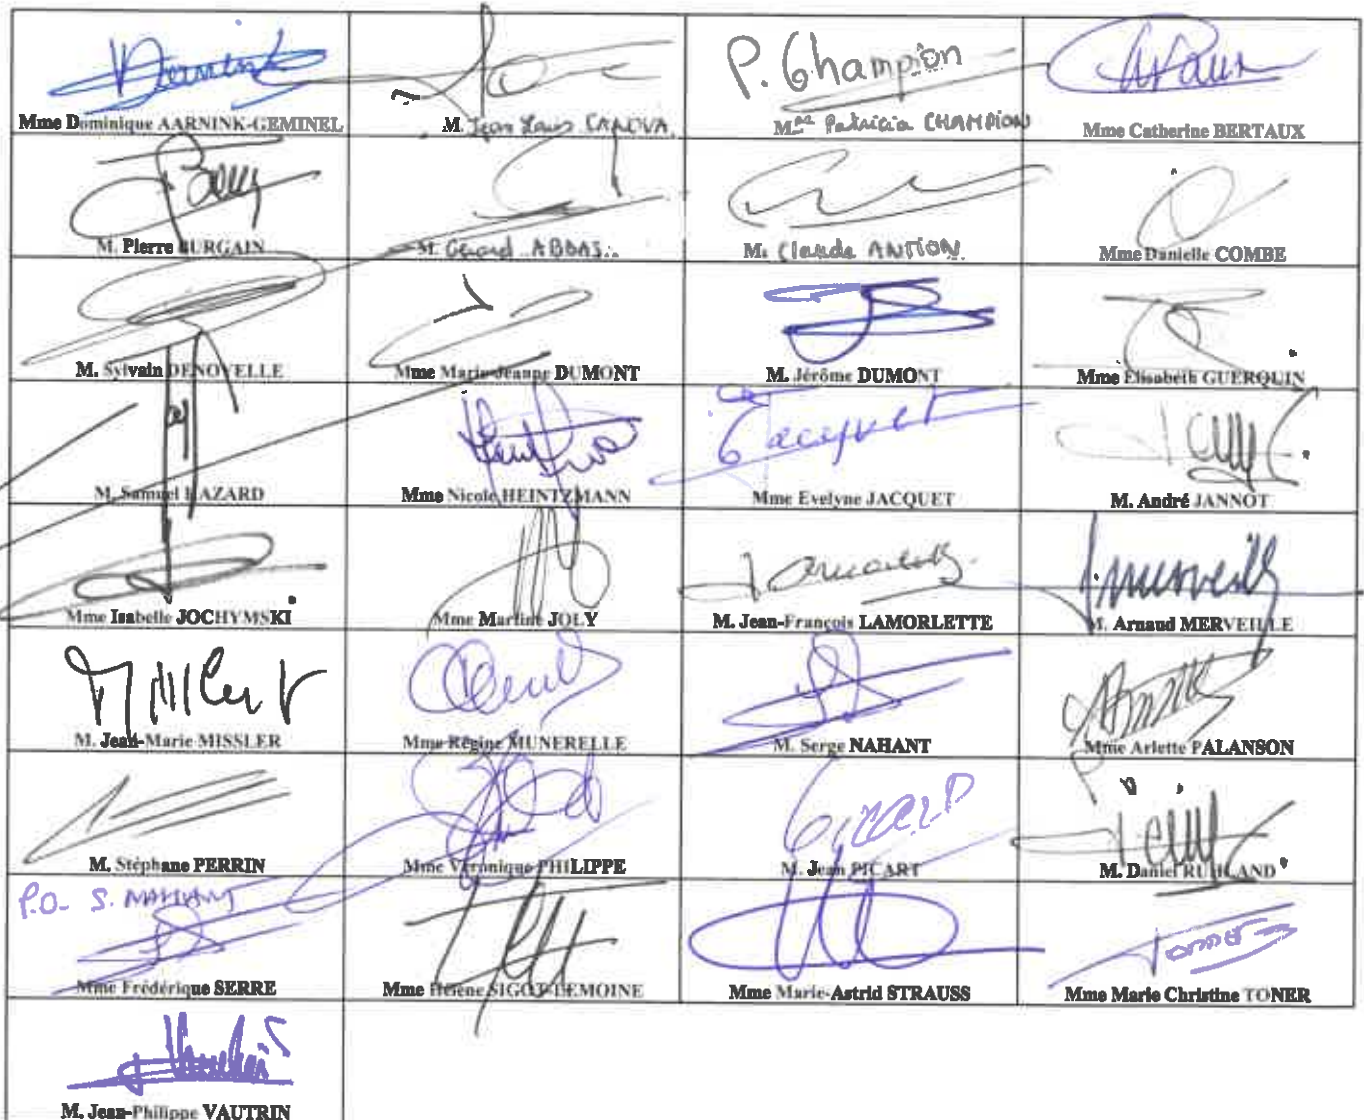 Mme Dominique AARNINK-GEMINEL
M. Jean Louis CANOVA.
P. Champion
Mme Patricia CHAMPION
Mme Catherine BERTAUX
M. Pierre BURGAIN
M. Gérard ABBAS
M. Claude ANTION.
Mme Danielle COMBE
M. Sylvain DENOYELLE
Mme Marie-Jeanne DUMONT
M. Jérôme DUMONT
Mme Elisabeth GUERQUIN
M. Samuel HAZARD
Mme Nicole HEINTZMANN
Jacquet
Mme Evelyne JACQUET
M. André JANNOT
Mme Isabelle JOCHYMSKI
Mme Martine JOLY
M. Jean-François LAMORLETTE
M. Arnaud MERVEILLE
M. Jean-Marie MISSLER
Mme Régine MUNERELLE
M. Serge NAHANT
Mme Arlette PALANSON
M. Stéphane PERRIN
Mme Véronique PHILIPPE
M. Jean PICART
M. Daniel RUHLAND
P.O. S. NAHANT
Mme Frédérique SERRE
Mme Hélène SIGOT-LEMOINE
Mme Marie-Astrid STRAUSS
Mme Marie Christine TONER
M. Jean-Philippe VAUTRIN